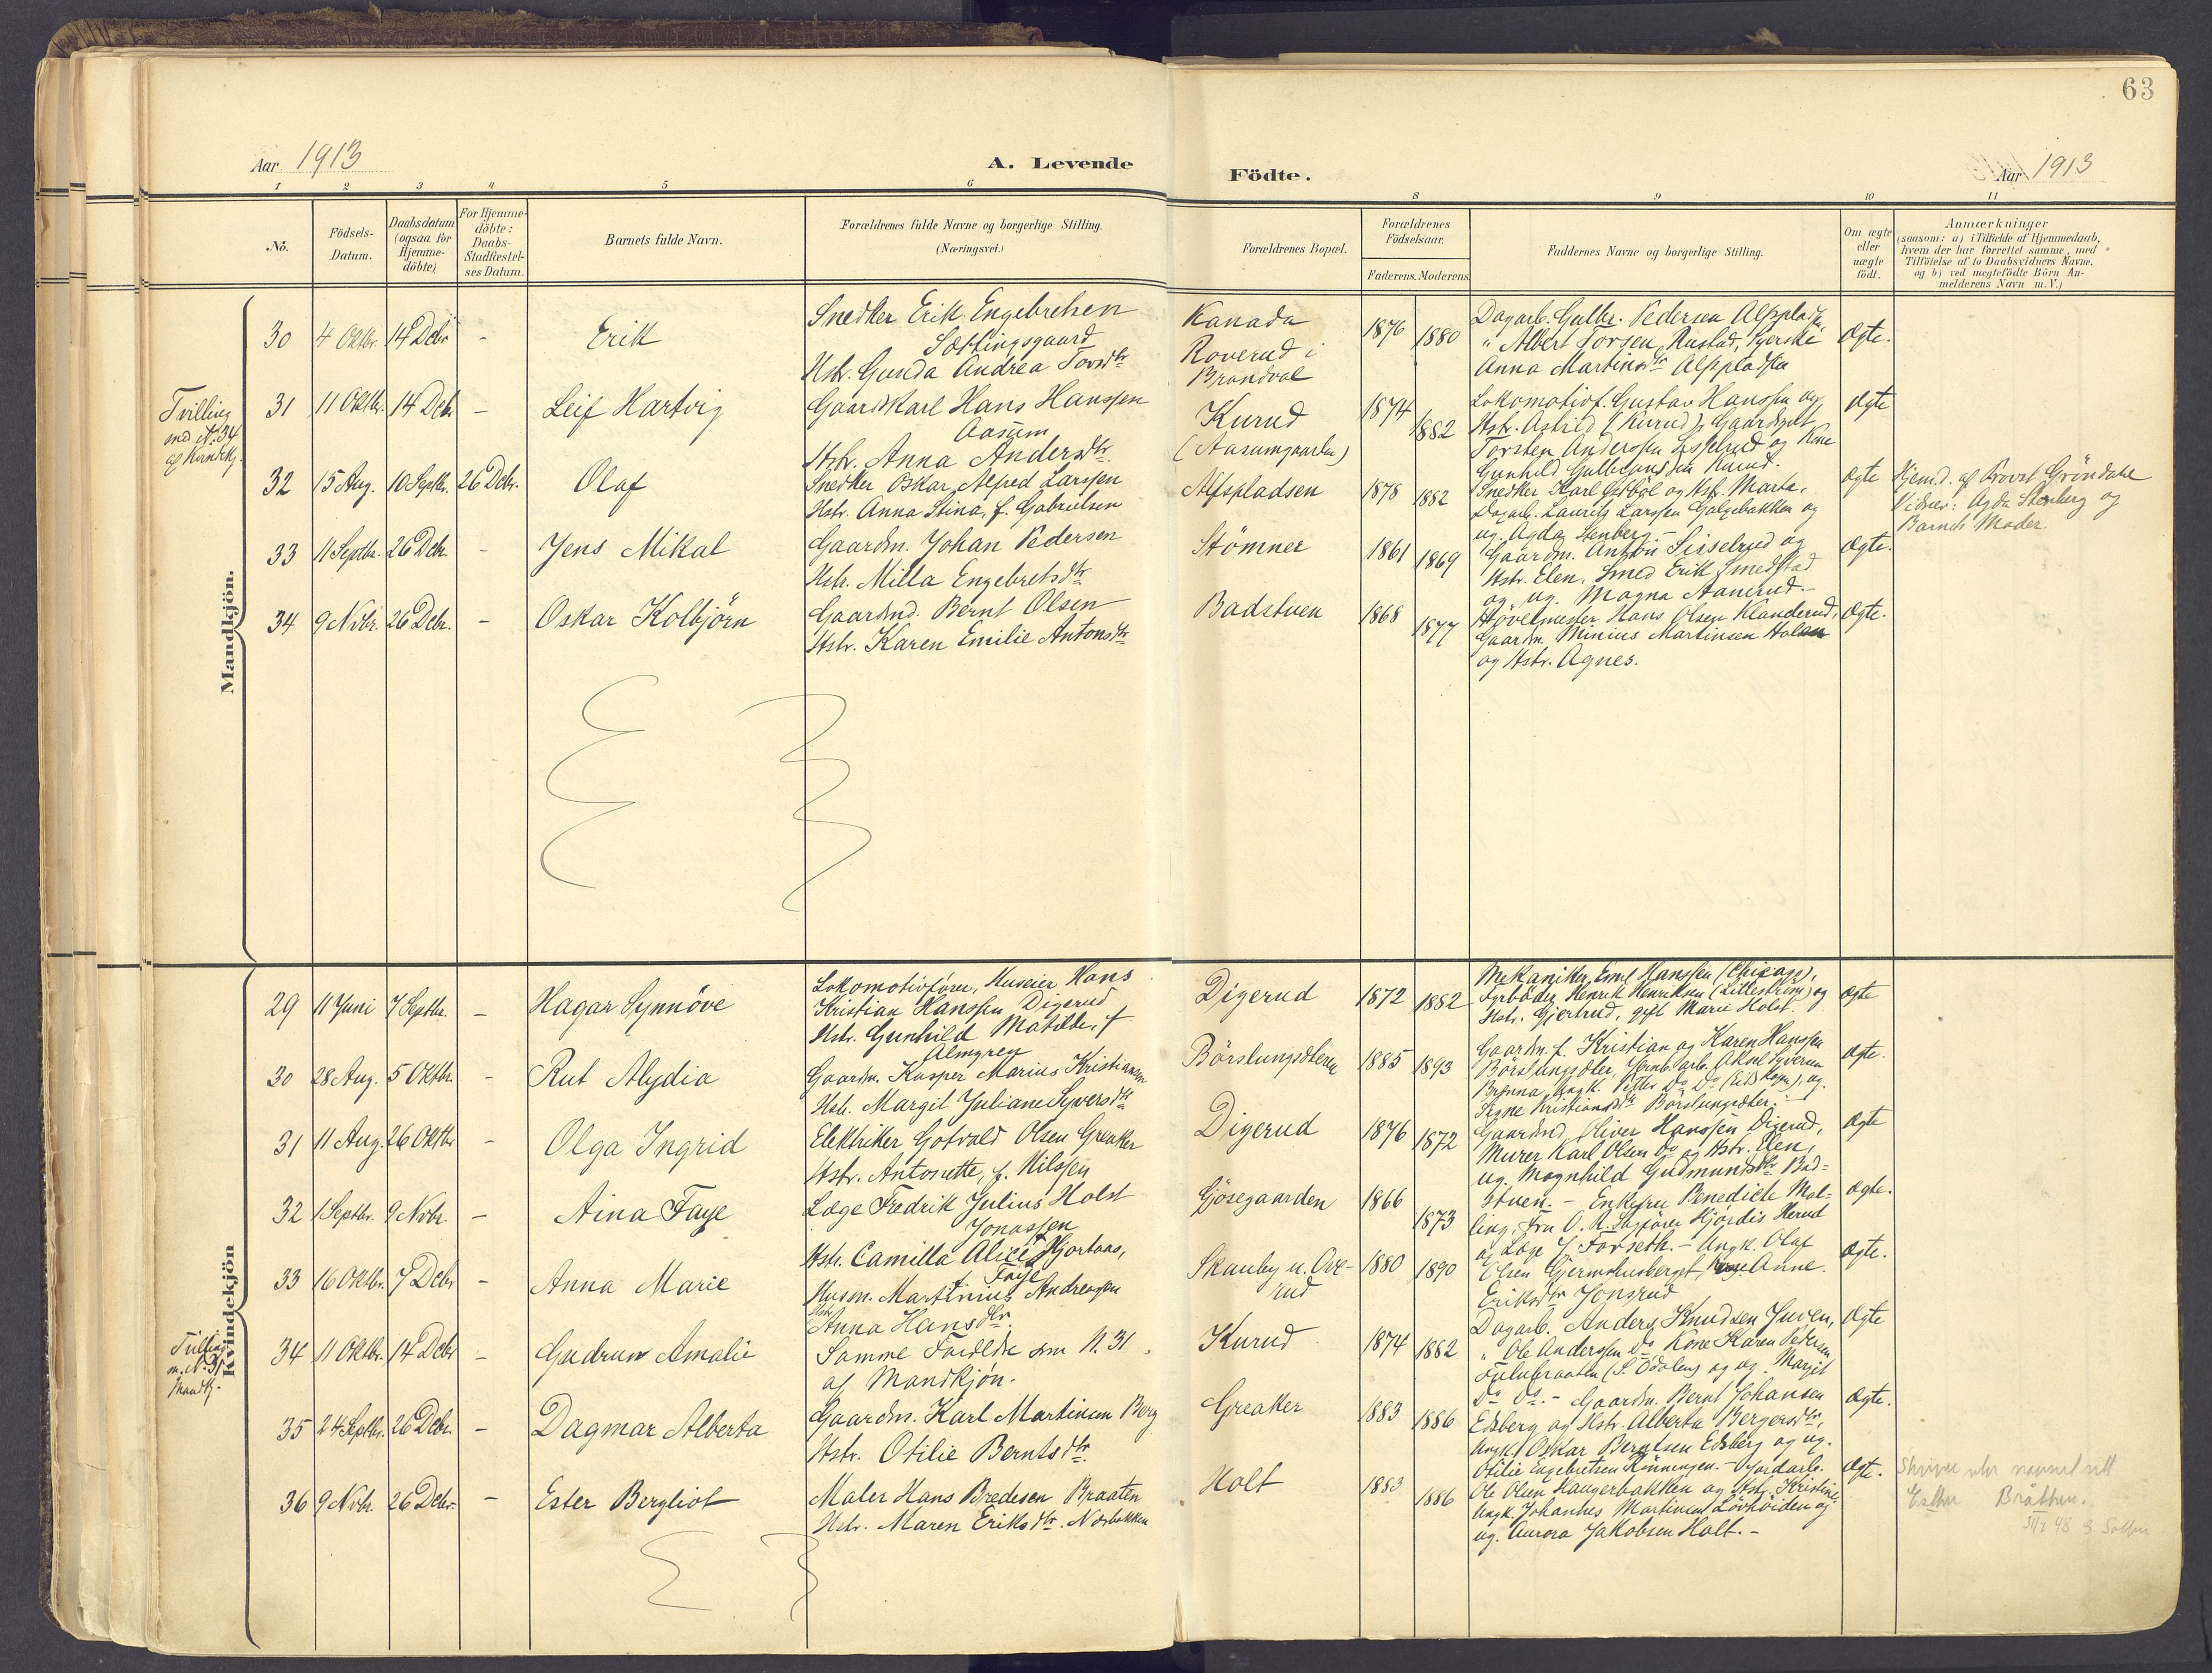 63
Aar 1913
A. Levende
Födte.
Aar 1913
1 2 3 4 5 6 8 9 10 11
No.
Födsels-Datum.
Daabsdatum (ogsaa for Hjemme-döbte)
For Hjemme-döbte: Daabs-Stadfæstel-ses Datum.
Barnets fulde Navn.
Forældrenes fulde Navne og borgerlige Stilling.
(Næringsvei.)
Forældrenes Bopæl.
Forældrenes Födselsaar.
Faderens. Moderens.
Faddernes Navne og borgerlige Stilling.
Om ægte eller uægte födt.
Anmærkninger
(saasom: a) i Tilfælde af Hjemmedaab,
hvem der har forrettet samme, med
Tilföielse af to Daabsvidners Navne,
og b) ved uægtefödte Börn An-
melderens Navn m. V.)
Mandkjön.
30 4 Oktbr. 14 Debr - Erik
Snedker Erik Engebretsen
Sætlingsgaard
Hstr. Gunda Andrea Torsdtr
Kanada
Roverud i
Brandval
1876 1880
Dagarb. Gulbr. Pedersen Alfspladsn
" Albert Torsen Rustad, Pige
Anna Martinsdtr Alfspladsen
Ægte.
Tvilling
med N. 34
af Kvindekj.
31 11 Oktbr. 14 Debr - Leif Hartvig
Gaardkarl Hans Hanssen
Aasum
Hstr. Anna Andersdtr.
Kurud
(Aasumgaarden)
1874 1882
Lokomotivf. Gustav Hanssen og
Hstr. Astrid (Kurud), Gaardgut
Torsten Anderssen Sisselrud og Kone
Gunhild Gulbrandsen Kurud.
Ægte
32 15 Aug. 10 Septbr. 26 Debr. Olaf
Snedker Oskar Alfred Larssen
Hstr. Anna Stina, f. Gabrielsen
Alfspladsen
1878 1882
Snedker Karl Östböl og Hstr. Marta,
Dagarb. Laurits Larssen Galgebakken og
ug. Agda Stenberg.
ægte
Hjemd. af Provst Gröndahl
Vidner: Agda Stenberg og
Barnets Moder.
33 11 Septbr. 26 Debr. - Jens Mikal
Gaardm. Johan Pedersen
Hstr. Milla Engebretsdtr
Stömner
1861 1869
Gaardm. Anton Sisselrud og
Hstr. Elen, Smed Erik Smedstad
og ug. Magna Aanerud.-
Ægte.
34 9 Novbr. 26 Debr. - Oskar Kolbjörn
Gaardmd. Bernt Olsen
Hstr. Karen Emilie Antonsdtr
Badstuen
1868 1877
Hövelmester Hans Olsen Klanderud,
Gaardm. Minius Martinsen Holen
og Hstr. Agnes.
Ægte.
Kvindekjön
29 11 Juni 7 Septbr. - Hagar Synnöve
Lokomotivförer, Huseier Hans
Kristian Hanssen Digerud
Hstr. Gunhild Matilde, f.
Almgren
Digerud
1872 1882
Mekaniker Emil Hanssen (Chicago),
Fyrböder Henrik Henriksen (Lilleström) og
Hstr. Gjertrud, gift Marie Holst.
ægte
30 28 Aug. 5 Oktbr. - Rut Alydia
Gaardm. Kasper Marius Kristiansen
Hstr. Margit Juliane Syversdtr
Börslungsæteren
1885 1893
Gaardm. f. Kristian og Karen Hanssen
Börslungsæter, Jernb.arb. Aksel Syversen
Brænna, Ungk. Petter Do Do (Eidskogn), ug.
Signe Kristiansdtr Börslungsæter.
Ægte.
31 11 Aug. 26 Oktbr. - Olga Ingrid
Elektriker Gotvald Olsen Greaker
Hstr. Antonette, f. Nilssen
Digerud
1876 1872
Gaardmd. Oliver Hanssen Digerud,
Murer Karl Olsen Do og Hstr. Elen,
ug. Magnhild Gudmundsdtr Bad-
stuen. -
Ægte
32 1 Septbr. 9 Novbr. - Aina Faye
Læge Fredrik Julius Holst
Jonassen
Hstr. Camilla Alice Hjortaas,
f. Faye
Gjösegaarden
1866 1873
Enkefru Benedicte Mal-
ling, Fru O. R. Sagförer Hjördis Herud
og Læge J. Forseth. -
Ægte.
33 16 Oktbr. 7 Debr - Anna Marie
Husm. Martinius Andreassen
Hstr Anna Hansdtr.
Skauby u. Ove-
rud
1880 1890
Ungk. Olaf
Olsen Gjermshusberget, Anne
Eriksdtr Jonsrud
Ægte.
Tvilling
m. N. 31
Mandkj.
34 11 Oktbr. 14 Debr - Gudrun Amalie
Samme Forældre som N. 31
af Mandkjön.
Kurud
1874 1882
Dagarb. Anders Knudsen Juven,
" Ole Anderssen Do Kone Karen Pedersen
Fulubraaten (S. Odalen) og ug. Margit
Do Do. -
Ægte
35 24 Septbr. 26 Debr. - Dagmar Alberta
Gaardm. Karl Martinsen Berg
Hstr. Otilie Berntsdtr.
Greaker
1883 1886
Gaardm. Bernt Johansen
Edsberg og Hstr. Alberta Bergersdtr,
Ungk. Oskar Berntsen Edsberg og ug.
Otilie Engebretsen Rönningen. -
Ægte.
36 9 Novbr. 26 Debr. - Ester Bergliot
Maler Hans Bredesen Braaten
Hstr. Maren Eriksdtr. Næsbakken
Holt
1883 1886
Jordarb.
Ole Olsen Haugerbakken og Hstr. Kristine,
Ungk. Johannes Martinsen Lövhöiden og
ug. Aurora Jakobsen Holt. -
Ægt.
Skriver navnet sitt
Esther Bråthen.
48